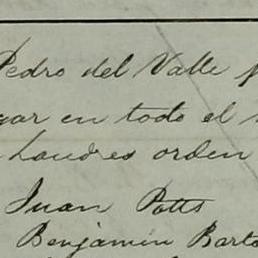 Pedro del Valle
gar en todo el
Londres orden
Juan Potts
Benjamin Barto